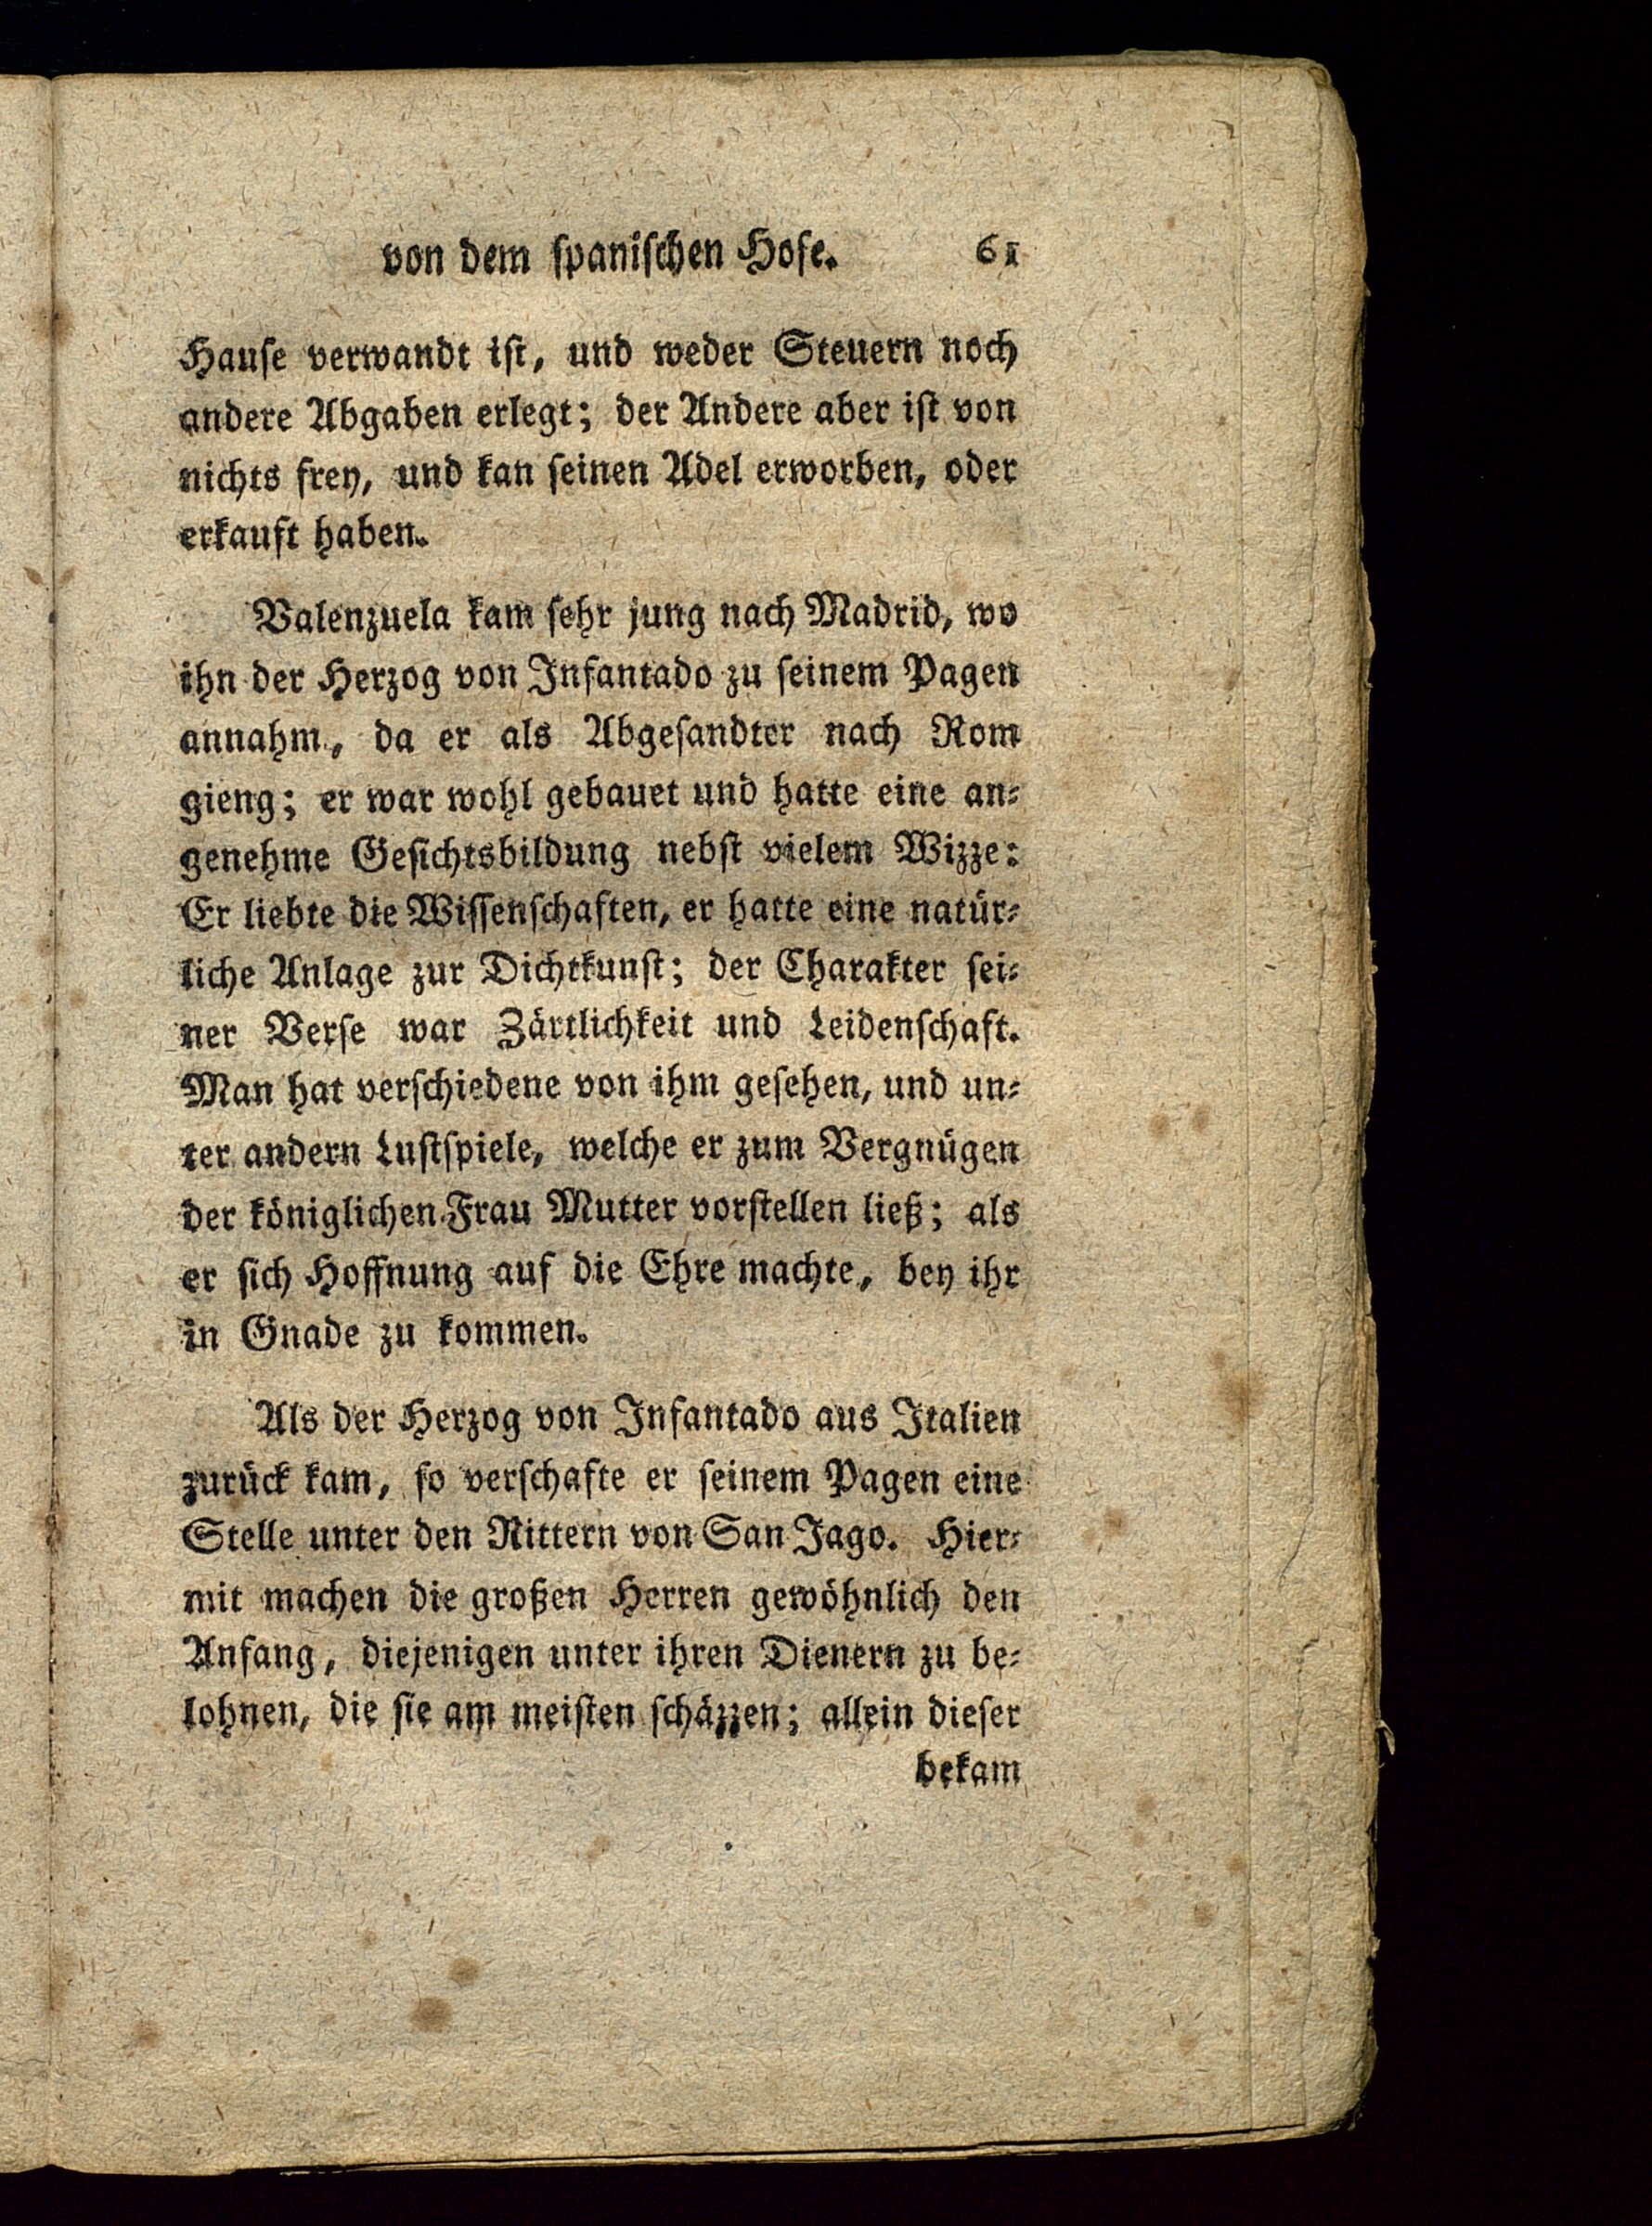 von dem spanischen Hofe. 61
Hause verwandt ist, und weder Steuern noch
andere Abgaben erlegt; der Andere aber ist von
nichts frey, und kan seinen Adel erworben, oder
erkauft haben.
Valenzuela kam sehr jung nach Madrid, wo
ihn der Herzog von Infantado zu seinem Pagen
annahm, da er als Abgesandter nach Rom
gieng; er war wohl gebauet und hatte eine an-
genehme Gesichtsbildung nebst vielem Wizze:
Er liebte die Wissenschaften, er hatte eine natür-
liche Anlage zur Dichtkunst; der Charakter sei-
ner Verse war Zärtlichkeit und Leidenschaft.
Man hat verschiedene von ihm gesehen, und un-
ter andern Lustspiele, welche er zum Vergnügen
der königlichen Frau Mutter vorstellen ließ; als
er sich Hoffnung auf die Ehre machte, bey ihr
in Gnade zu kommen.
Als der Herzog von Infantado aus Italien
zurück kam, so verschafte er seinem Pagen eine
Stelle unter den Rittern von San Jago. Hier-
mit machen die großen Herren gewöhnlich den
Anfang, diejenigen unter ihren Dienern zu be-
lohnen, die sie am meisten schäzzen; allein dieser
bekam